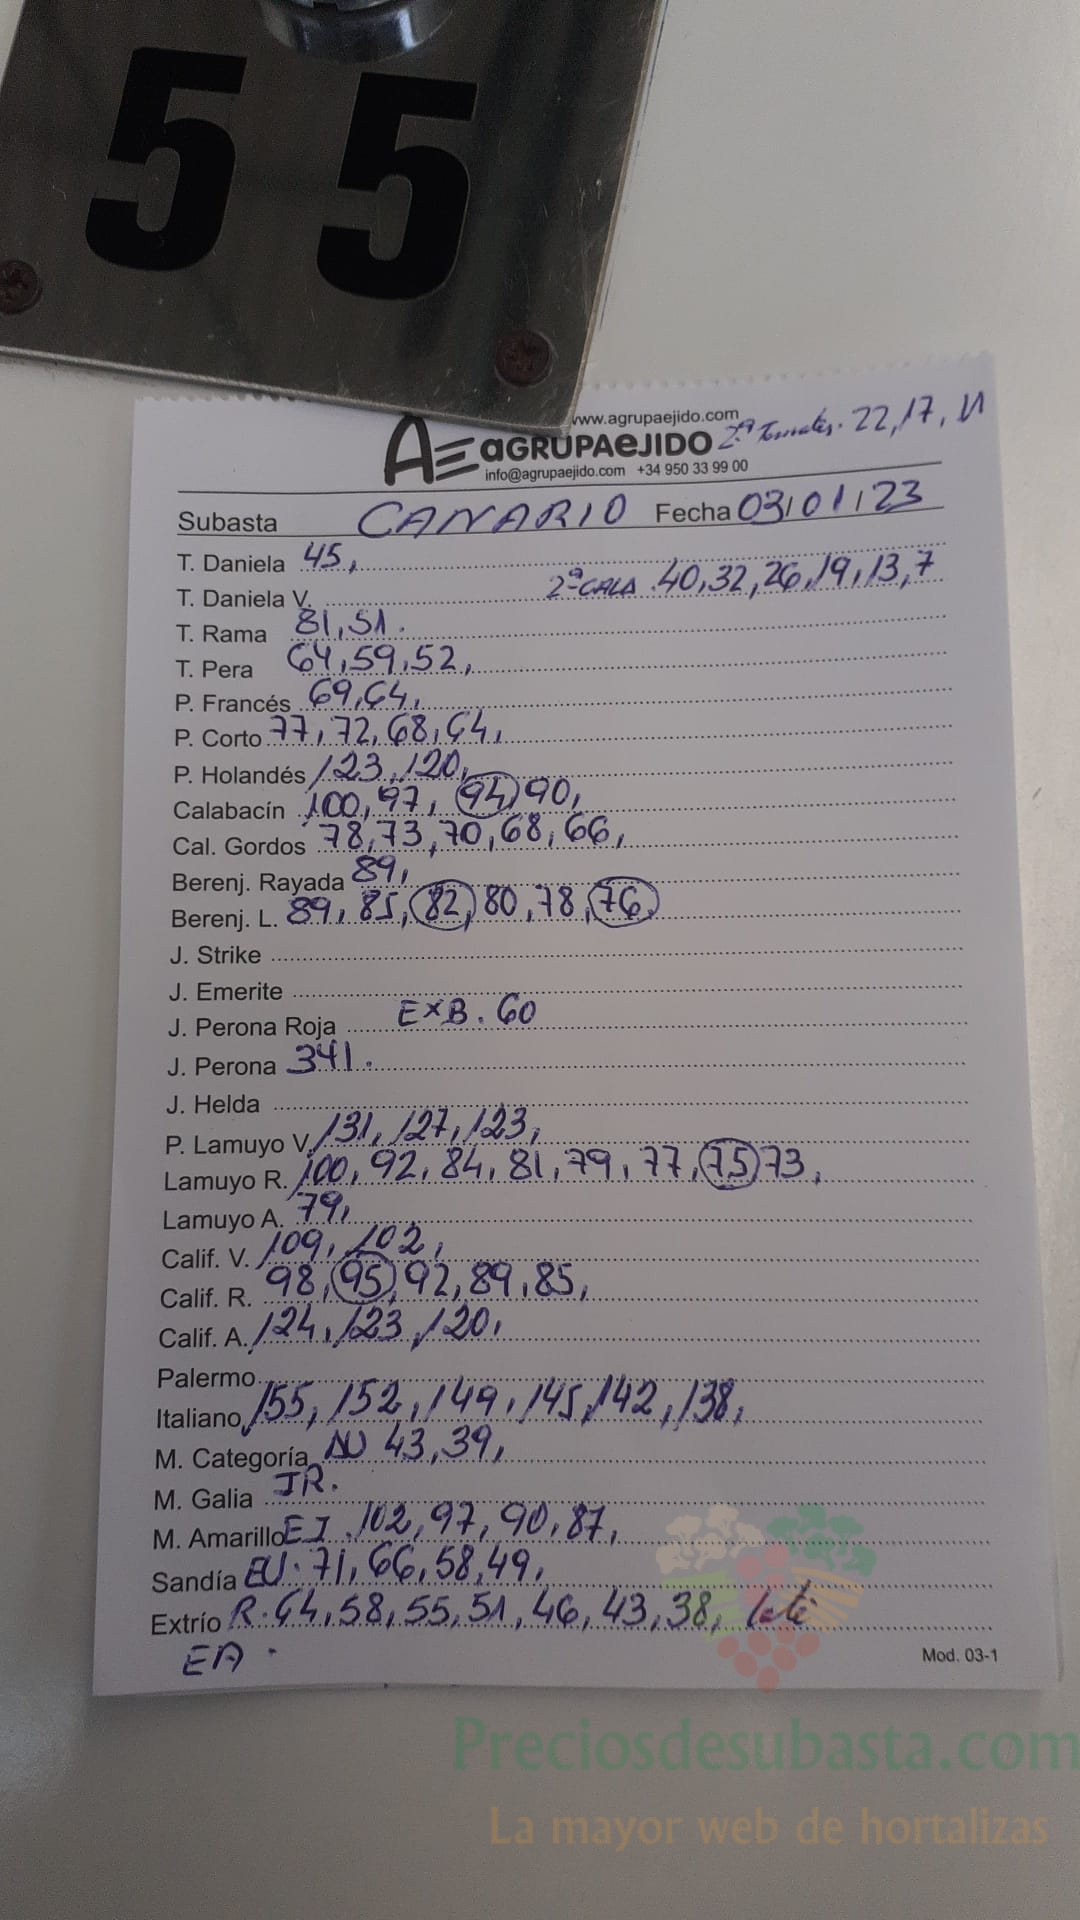 55
www.agrupaejido.com
AE aGRUPAeJIDO 2ª Tomates. 22,17,11
info@agrupaejido.com +34 950 33 99 00
Subasta CANARIO Fecha 03/01/23
T. Daniela 45,
T. Daniela V. 2ª CALA 40,32,26,19,13,7
T. Rama 81,51.
T. Pera 64,59,52,
P. Francés 69,64,
P. Corto 77,72,68,64,
P. Holandés 123,120,
Calabacín 100,97,94,90,
Cal. Gordos 78,73,70,68,66,
Berenj. Rayada 89,
Berenj. L. 89,85,82,80,78,76,
J. Strike
J. Emerite
J. Perona Roja EXB. 60
J. Perona 341.
J. Helda
P. Lamuyo V. 131,127,123,
Lamuyo R. 100,92,84,81,79,77,75,73,
Lamuyo A. 79,
Calif. V. 109,102,
Calif. R. 98,95,92,89,85,
Calif. A. 124,123,120,
Palermo
Italiano 155,152,149,145,142,138,
M. Categoría 43,39,
M. Galia JR.
M. Amarillo EI. 102,97,90,87,
Sandía EU. 71,66,58,49,
Extrío R. 64,58,55,51,46,43,38,
EA.
Mod. 03-1
Preciosdesubasta.com
La mayor web de hortalizas